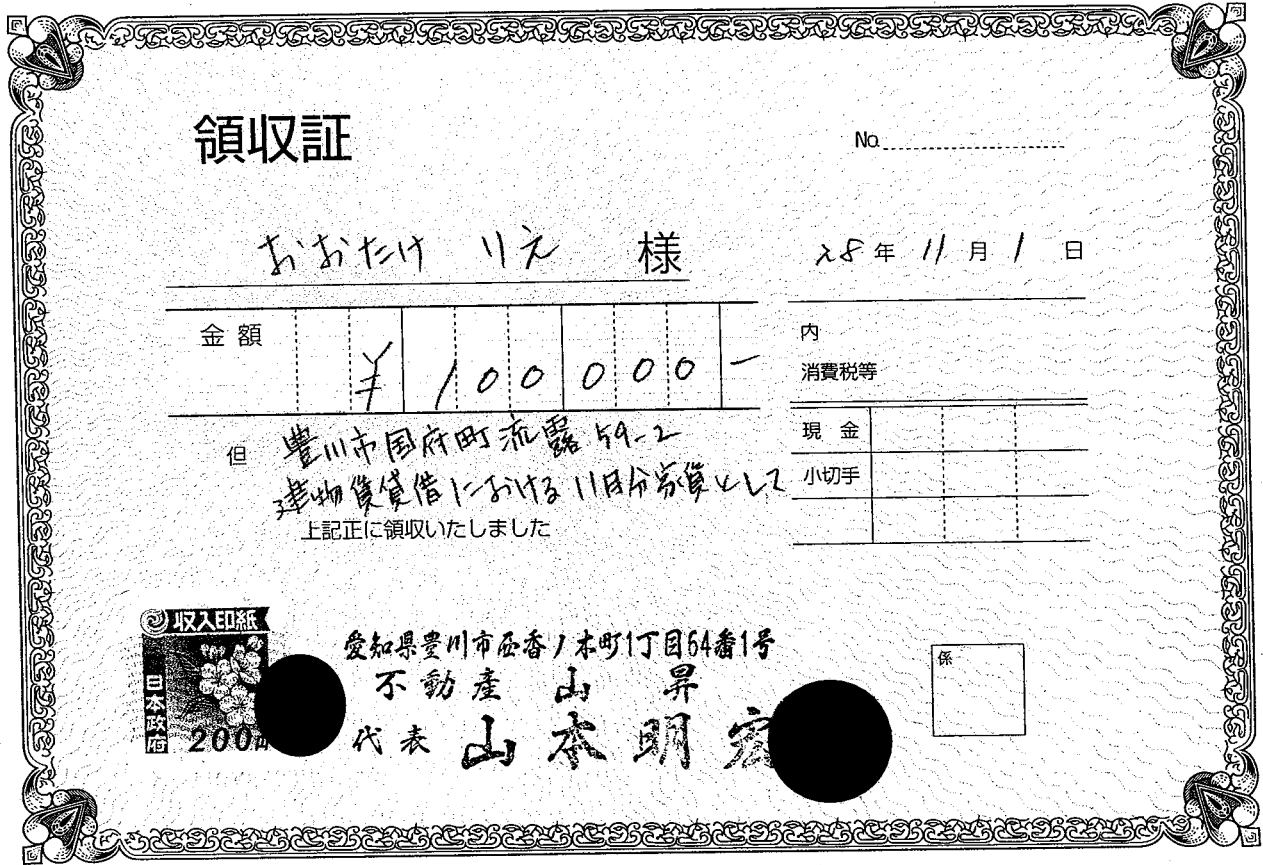 領収証
No.
おおたけ りえ 様
28年 11月 1日
金額 ¥100000-
内
消費税等
但 豊川市国府町流霞54-2
建物賃貸借における11月分家賃として
上記正に領収いたしました
現金
小切手
収入印紙
日本政府
200円
愛知県豊川市西香ノ木町1丁目64番1号
不動産 山昇
代表 山本明宏
係